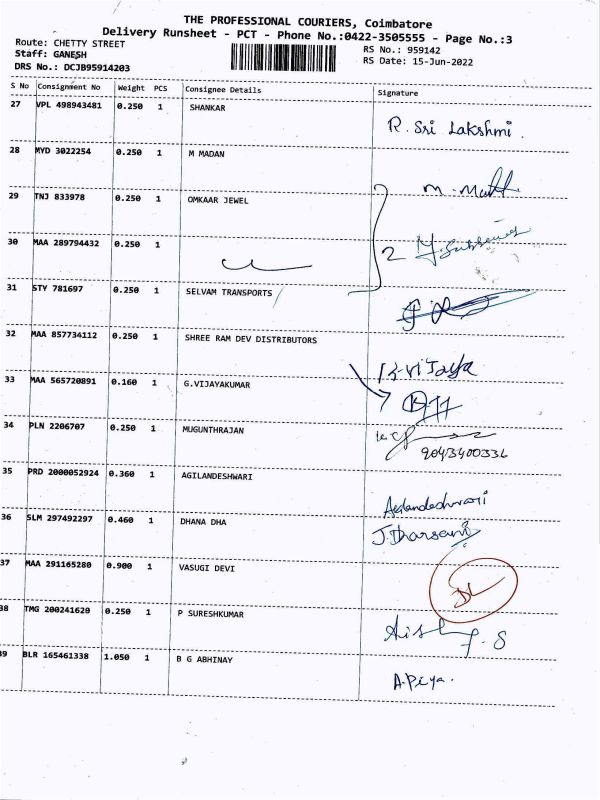 THE PROFESSIONAL COURIERS, Coimbatore
Delivery Runsheet - PCT - Phone No.:0422-3505555 - Page No.:3
Route: CHETTY STREET
RS No.: 959142
Staff: GANESH
RS Date: 15-Jun-2022
DRS No.: DCJB95914203
S No Consignment No Weight PCS Consignee Details Signature
27 VPL 498943481 0.250 1 SHANKAR R. Sri Lakshmi.
28 MYD 3022254 0.250 1 M MADAN
29 TNJ 833978 0.250 1 OMKAAR JEWEL
30 MAA 289794432 0.250 1 2
31 STY 781697 0.250 1 SELVAM TRANSPORTS
32 MAA 857734112 0.250 1 SHREE RAM DEV DISTRIBUTORS
33 MAA 565720891 0.160 1 G.VIJAYAKUMAR
34 PLN 2206707 0.250 1 MUGUNTHRAJAN
35 PRD 2000052924 0.360 1 AGILANDESHWARI
36 SLM 297492297 0.460 1 DHANA DHA J.Dharsani
37 MAA 291165280 0.900 1 VASUGI DEVI
38 TMG 200241620 0.250 1 P SURESHKUMAR
39 BLR 165461338 1.050 1 B G ABHINAY A.Priya.